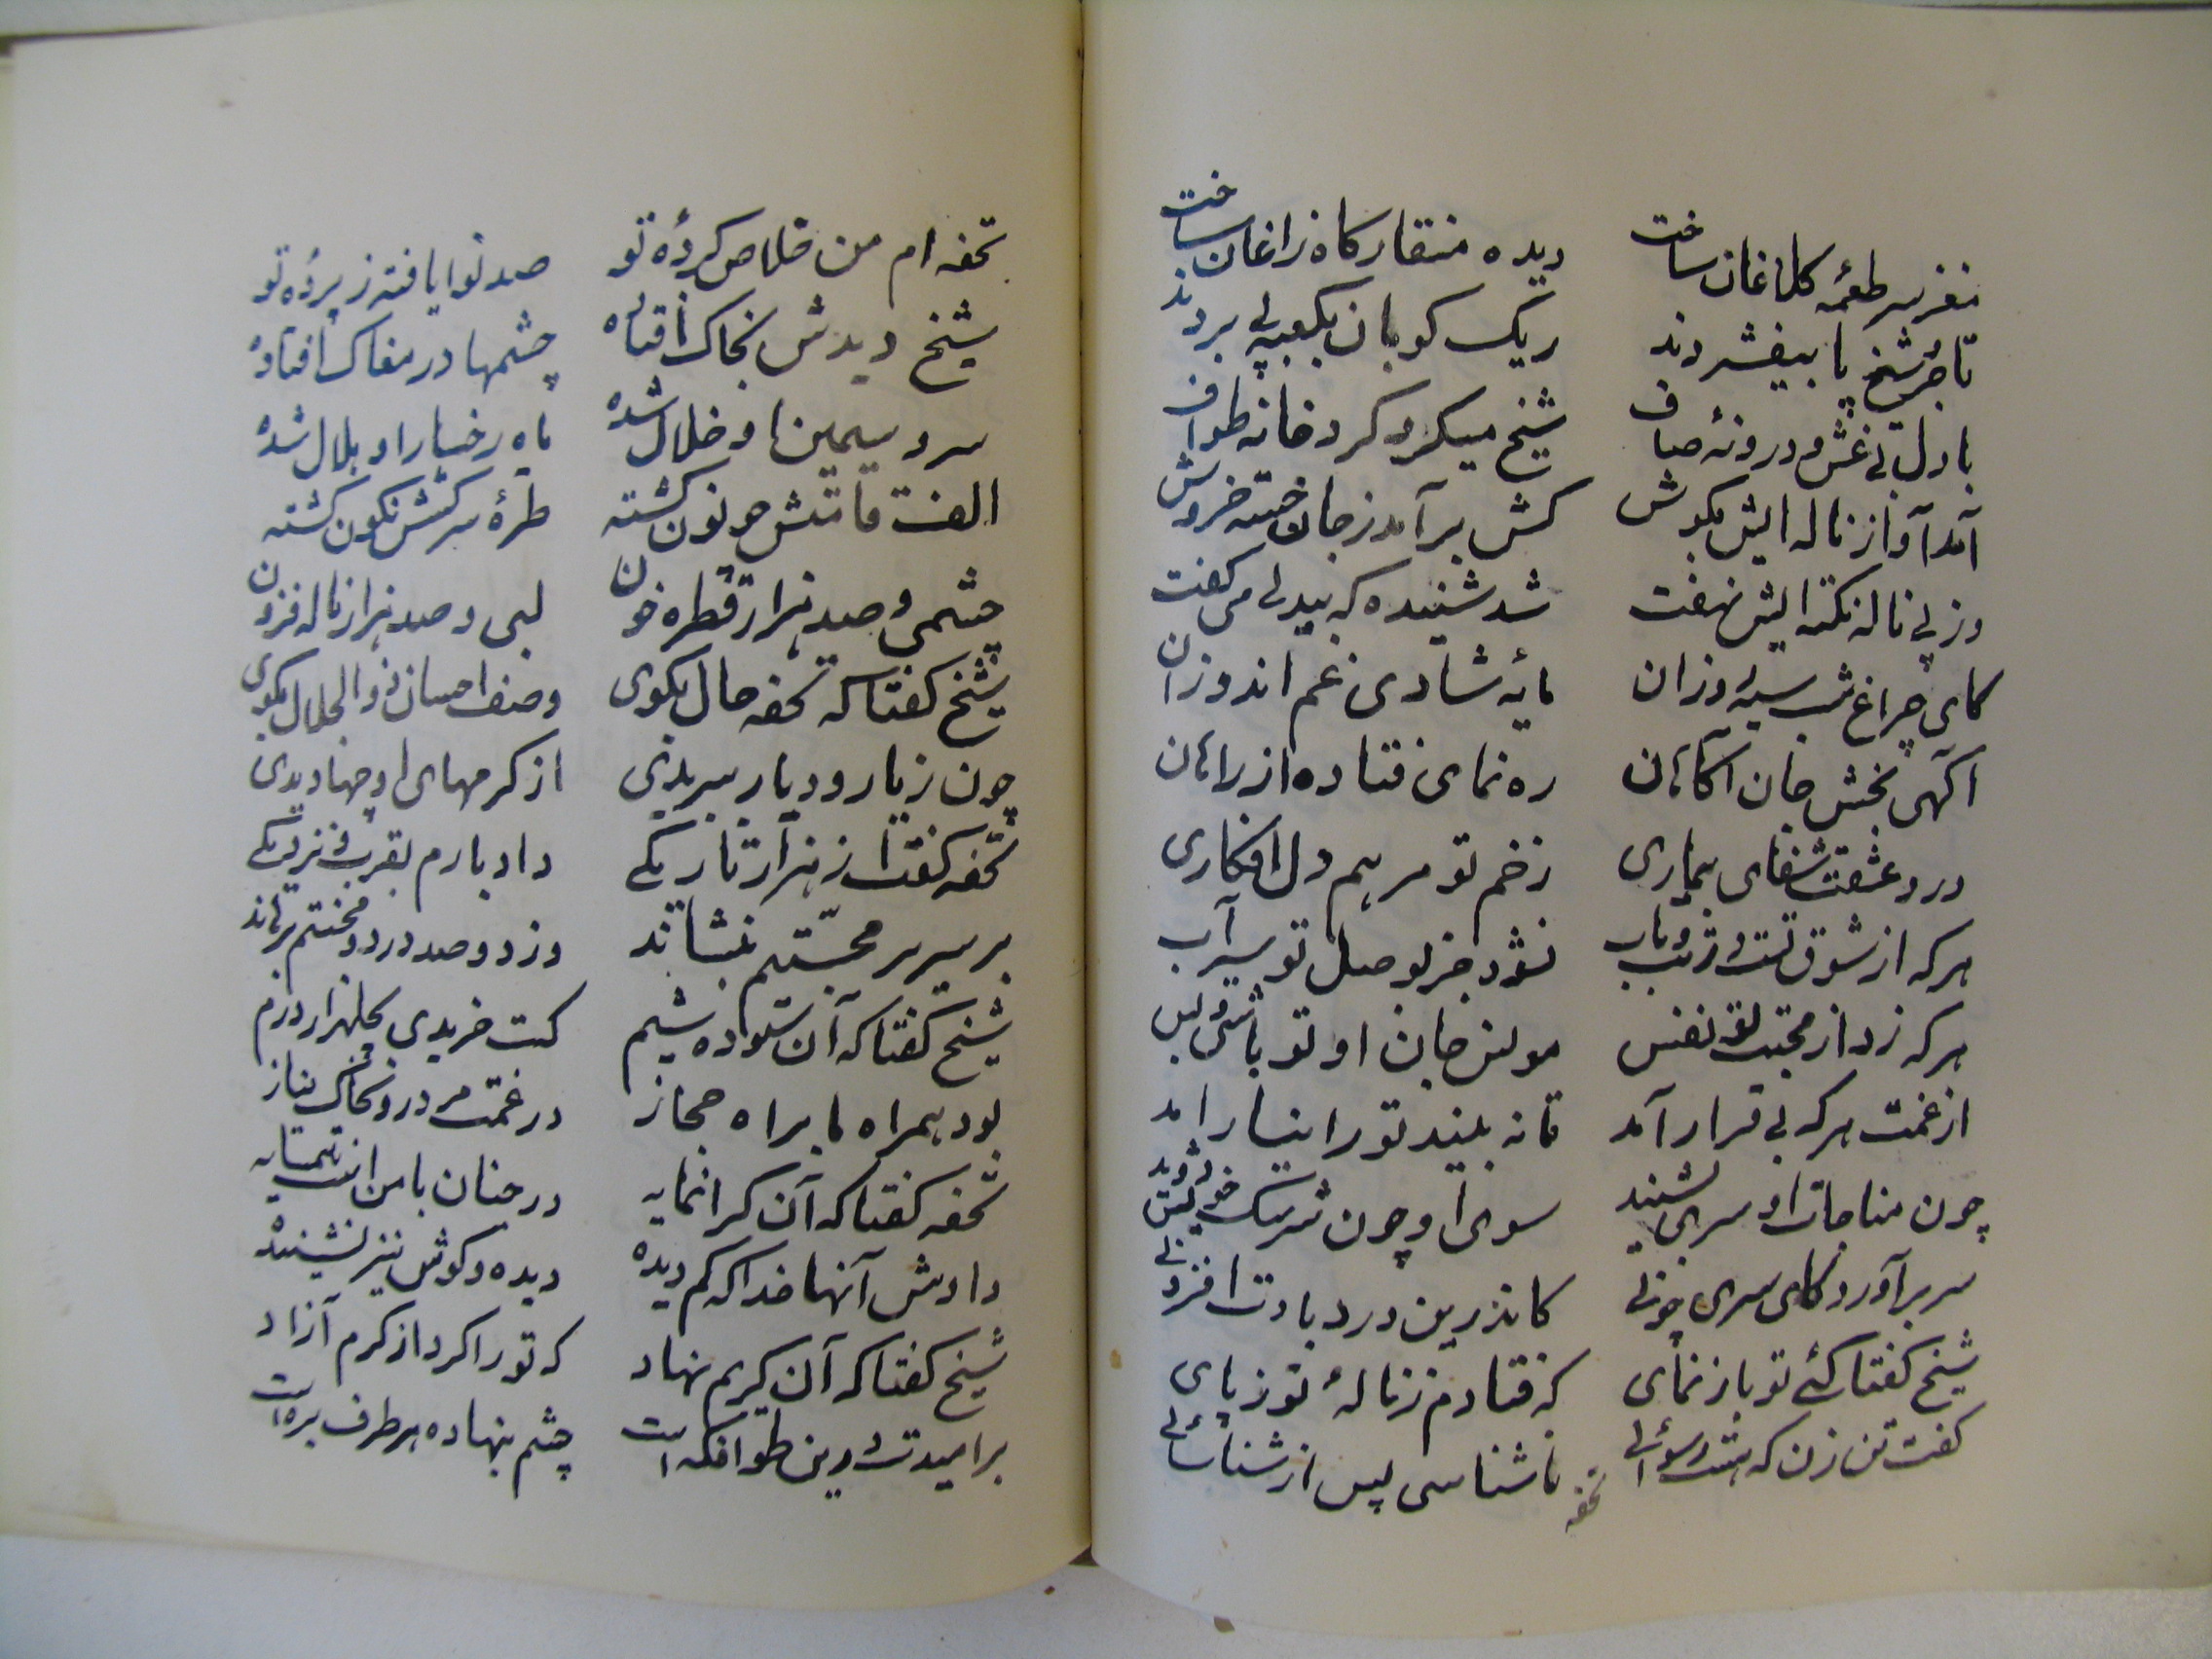 مغز سر طعمهٔ کلاغان ساخت دیده منقارکاه زاغان ساخت
تاجر و شیخ پا بیفشردند ریک کوبان بکعبه پی بردند
با دل بی غش و درونهٔ صاف شیخ میکرد کرد خانه طواف
آمد آواز ناله ایش بکوش کش برآمد ز جان خسته خروش
وز پی ناله نکته ایش نهفت شد شنیده که بیدلی می کفت
کای چراغ شب سیه روزان مایهٔ شادی غم اندوزان
آکهی بخش جان آکاهان ره نمای فتاده از راهان
درد عشقت شفای بیماری زخم تو مرهم دل افکاری
هرکه از شوق تست در تب و تاب نشود جز بوصل تو سیرآب
هرکه زد از محبت تو نفس مونس جان او تو باشی و بس
از غمت هرکه بی قرار آمد تا نه بیند تو را نیارامد
چون مناجات او سری بشنید سوی او چون شریک خویش دوید
سر برآورد کای سری چونی کاندرین درد بادت افزونی
شیخ کفتا کئی تو باز نمای که فتادم ز نالهٔ تو ز پای
کفت تن زن که هست رسوائی ناشناسی پس از شناسائی
تحفه
تحفه ام من خلاص کردهٔ تو صد نوا یافته ز پردهٔ تو
شیخ دیدش بخاک افتاده چشمها در مغاک افتاده
سرو سیمین او خلال شده ماه رخسار او هلال شده
الف قامتش چو نون کشته طرهٔ سرکشش نکون کشته
چشمی و صد هزار قطره خون لبی و صد هزار ناله فزون
شیخ کفتا که تحفه حال بکوی وصف احسان ذوالجلال بکوی
چون ز یار و دیار ببریدی از کرمهای او چها دیدی
تحفه کفتا ز هزار تاریکی داد بارم بقرب و نزدیکی
بر سریر محبّتم بنشاند وز دو صد درد و محنتم برهاند
شیخ کفتا که آن ستوده شیم کت خریدی بچلهزار درم
بود همراه ما براه حجاز در غمت مرد در و بخاک نیاز
تحفه کفتا که آن کرانمایه در جنان با من است همسایه
دادش آنها خدا که کم دیده دیده و کوش نیز نشنیده
شیخ کفتا که آن کریم نهاد که تو را کرد از کرم آزاد
بر امیدت درین طوافکه است چشم بنهاده هر طرف بره است